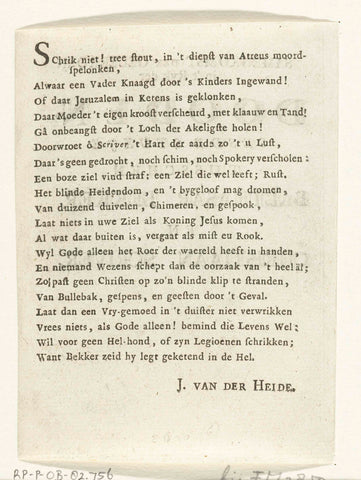 Schrik niet! tree stout, in 't diepst van Atreus moord-
spelonken,
Alwaar een Vader Knaagd door 's Kinders Ingewand!
Of daar Jeruzalem in Ketens is geklonken,
Daar Moeder 't eigen kroost verscheurd, met klaauw en Tand!
Gâ onbeangst door 't Loch der Akeligste holen!
Doorwroet ô Scriver 't Hart der aarde zo 't u Lust,
Daar 's geen gedrocht, noch schim, noch Spokery verscholen:
Een boze ziel vind straf: een Ziel die wel leeft; Rust.
Het blinde Heidendom, en 't bygeloof mag dromen,
Van duizend duivelen, Chimeren, en gespook,
Laat niets in uwe Ziel als Koning Jesus komen,
Al wat daar buiten is, vergaat als mist en Rook.
Wyl Gode alleen het Roer der waereld heeft in handen,
En niemand Wezens schept dan de oorzaak van 't heelal;
Zo past geen Christen op zo'n blinde klip te stranden,
Van Bullebak, gespens, en geesten door 't Geval.
Laat dan een Vry-gemoed in 't duister niet verwrikken
Vrees niets, als Gode alleen! bemind die Levens Wel:
Wil voor geen Hel-hond, of zyn Legioenen schrikken;
Want Bekker zeid hy legt geketend in de Hel.
J. VAN DER HEIDE.
RP-P-OB-82.756